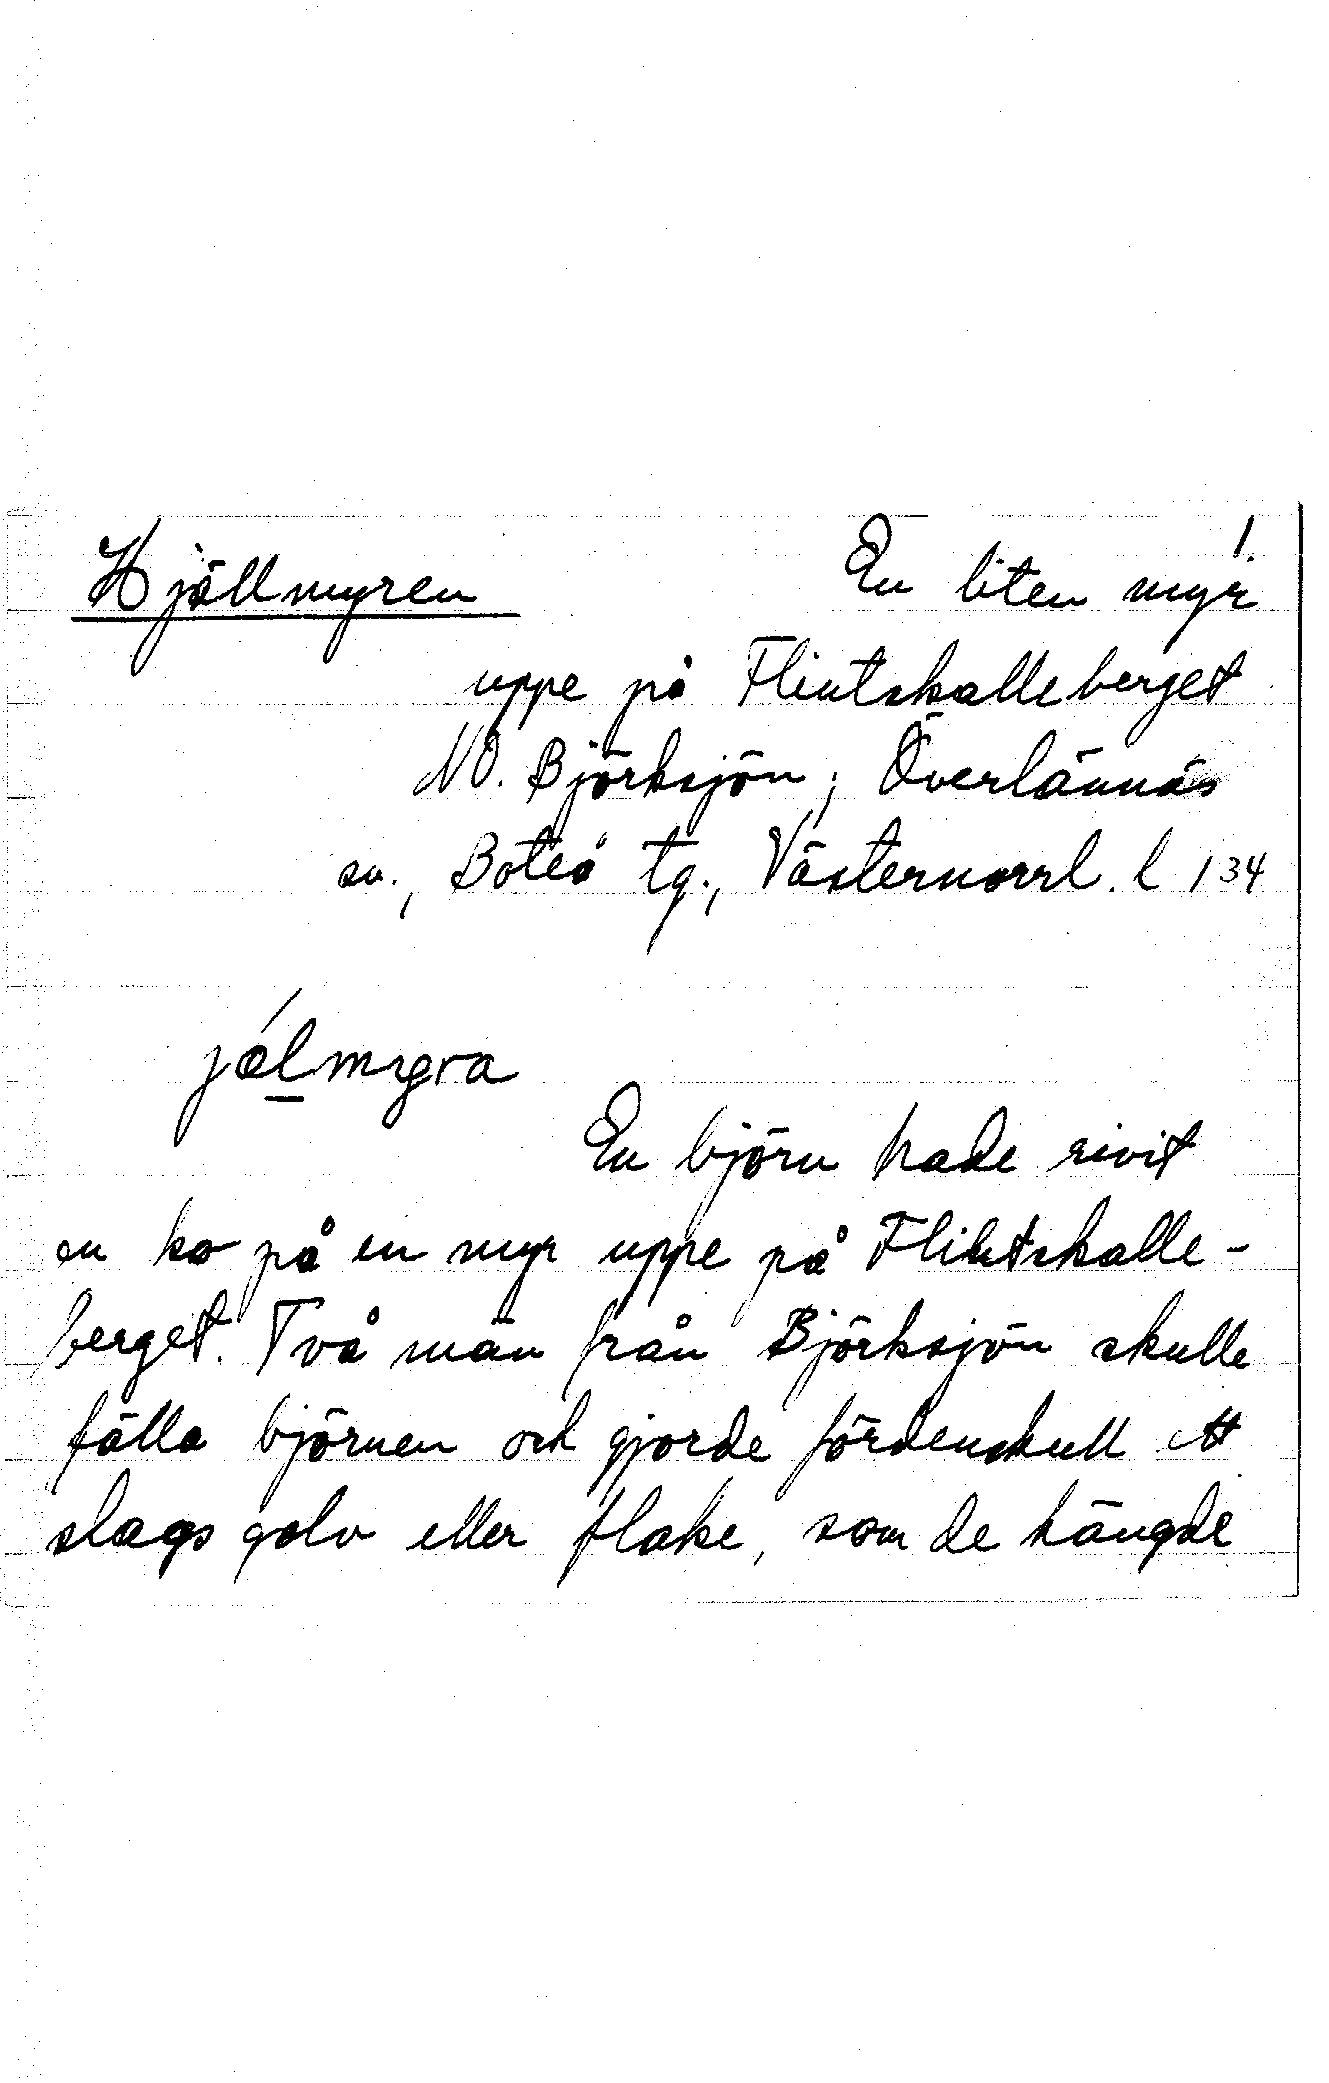 1.
Hjällmyren En liten myr
uppe på Flintskalleberget
NO. Björksjön; Överlännäs
sn., Boteå tg., Västernorrl. l 134
jǽlmyra
En björn hade rivit
en ko på en myr uppe på Flintskalle-
berget. Två män från Björksjön skulle
fälla björnen och gjorde fördenskull ett
slags golv eller flake, som de hängde